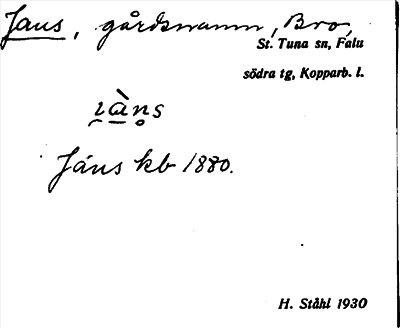 Jans, gårdsnamn, Bro,
St. Tuna sn, Falu
södra tg, Kopparb. l.
Jáns kb 1880.
H. Ståhl 1930